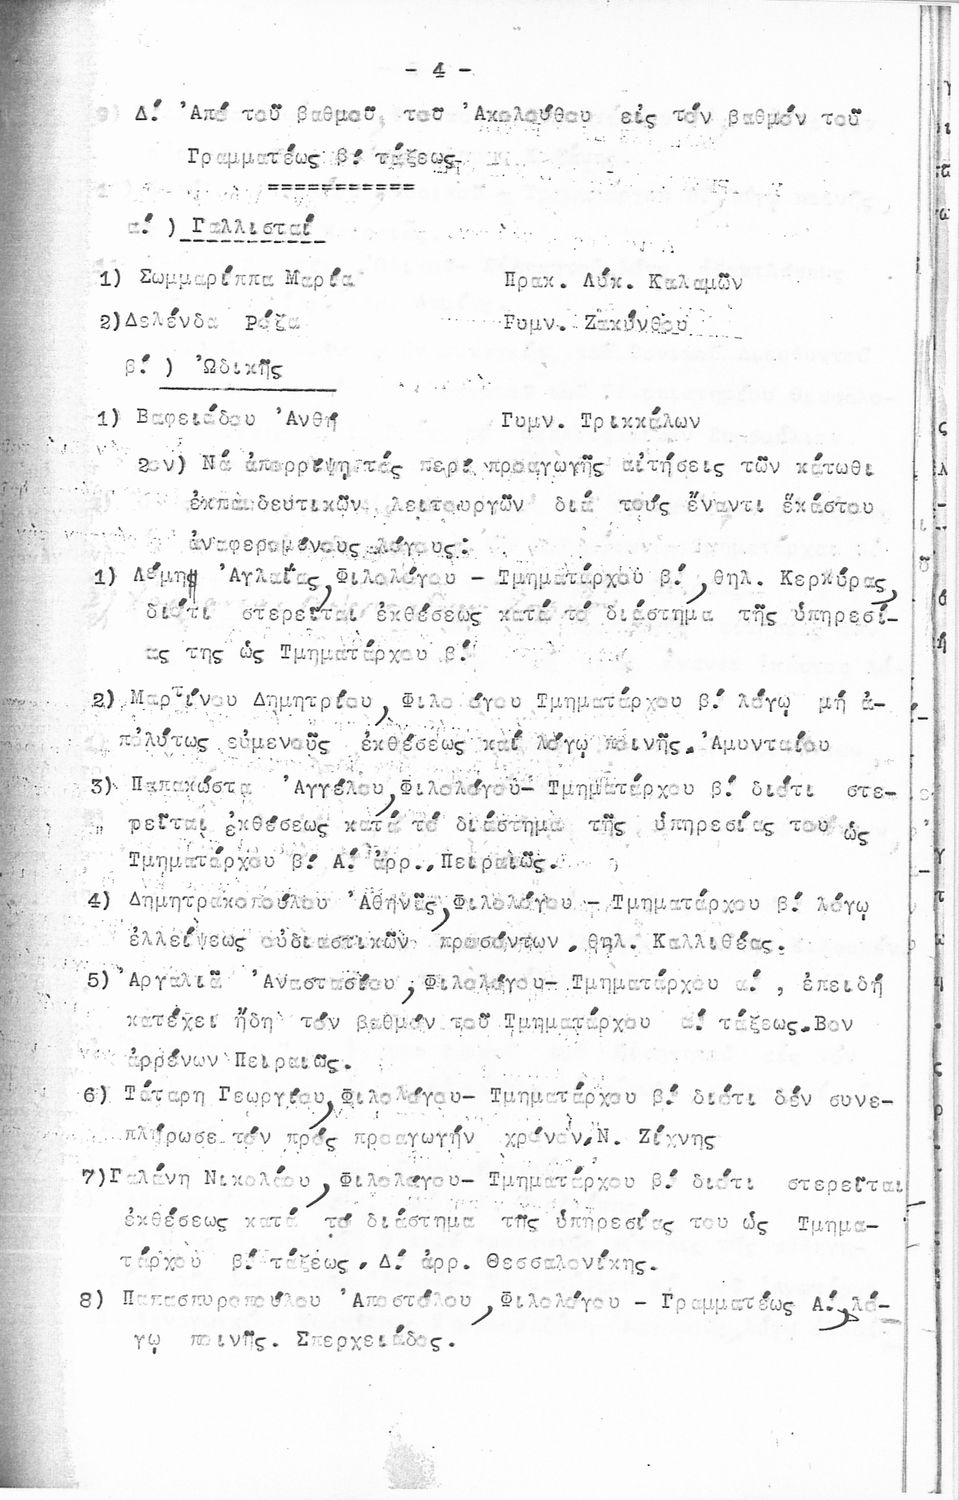 - 4 -
Δ.́ Ἀπό τοῦ βαθμοῦ, του Ἀκολούθου εἰς τόν βαθμόν τοῦ
Γραμματέως β.́ τάξεως
α.́ ) Γαλλισταί
1) Σωμμαρίππα Μαρία Πρακ. Λύκ. Καλαμῶν
2) Δελένδα Ρόζα Γυμν. Ζακύνθου
β.́ ) Ὠδικῆς
1) Βαφειάδου Ἀνθή Γυμν. Τρικκάλων
2ον) Νά ἀπορρίψη τάς περί προαγωγῆς αἰτήσεις τῶν κάτωθι
ἐκπαιδευτικῶν λειτουργῶν διά τούς ἔναντι ἑκάστου
ἀναφερομένους λόγους:
1) Λέμη Ἀγλαΐας, Φιλολόγου - Τμηματάρχου β.́, θηλ. Κερκύρας,
διότι στερεῖται ἐκθέσεως κατά τό διάστημα τῆς ὑπηρεσί-
ας της ὡς Τμηματάρχου β.́
2) Μαρτίνου Δημητρίου, Φιλο όγου Τμηματάρχου β.́ λόγῳ μή ἀ-
πολύτως εὐμενοῦς ἐκθέσεως καί λόγῳ ποινῆς. Ἀμυνταίου
3) Παπακώστα Ἀγγέλου, Φιλολόγου- Τμηματάρχου β.́ διότι στε-
ρεῖται ἐκθέσεως κατά τό διάστημα τῆς ὑπηρεσίας του ὡς
Τμηματάρχου β.́ Α.́ ἀρρ., Πειραιῶς.
4) Δημητρακοπούλου Ἀθηνᾶς, Φιλολόγου - Τμηματάρχου β.́ λόγῳ
ἐλλείψεως οὐδιαστικῶν προσόντων, θηλ. Καλλιθέας.
5) Ἀργαλιᾶ Ἀναστασίου, Φιλολόγου- Τμηματάρχου α.́ , ἐπειδή
κατέχει ἤδη τόν βαθμόν τοῦ Τμηματάρχου α.́ τάξεως. Βον
ἀρρένων Πειραιῶς.
6) Τάταρη Γεωργίου, Φιλολόγου- Τμηματάρχου β.́ διότι δέν συνε-
πλήρωσε τόν πρός προαγωγήν χρόνον, Ν. Ζίχνης
7) Γαλάνη Νικολάου, Φιλολόγου- Τμηματάρχου β.́ διότι στερεῖται
ἐκθέσεως κατά τό διάστημα τῆς ὑπηρεσίας του ὡς Τμημα-
τάρχου β.́ τάξεως, Δ.́ ἀρρ. Θεσσαλονίκης.
8) Παπασπυροπούλου Ἀποστόλου, Φιλολόγου - Γραμματέως Α.́, λό-
γῳ ποινῆς. Σπερχειάδος.